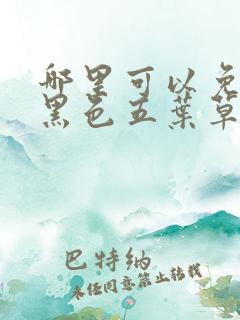 哪里可以免
黑色五葉草
巴特纳
未经同意禁止转载